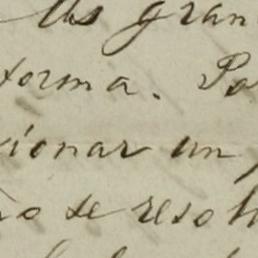 gran
forma. Po
ionar un
no se resol